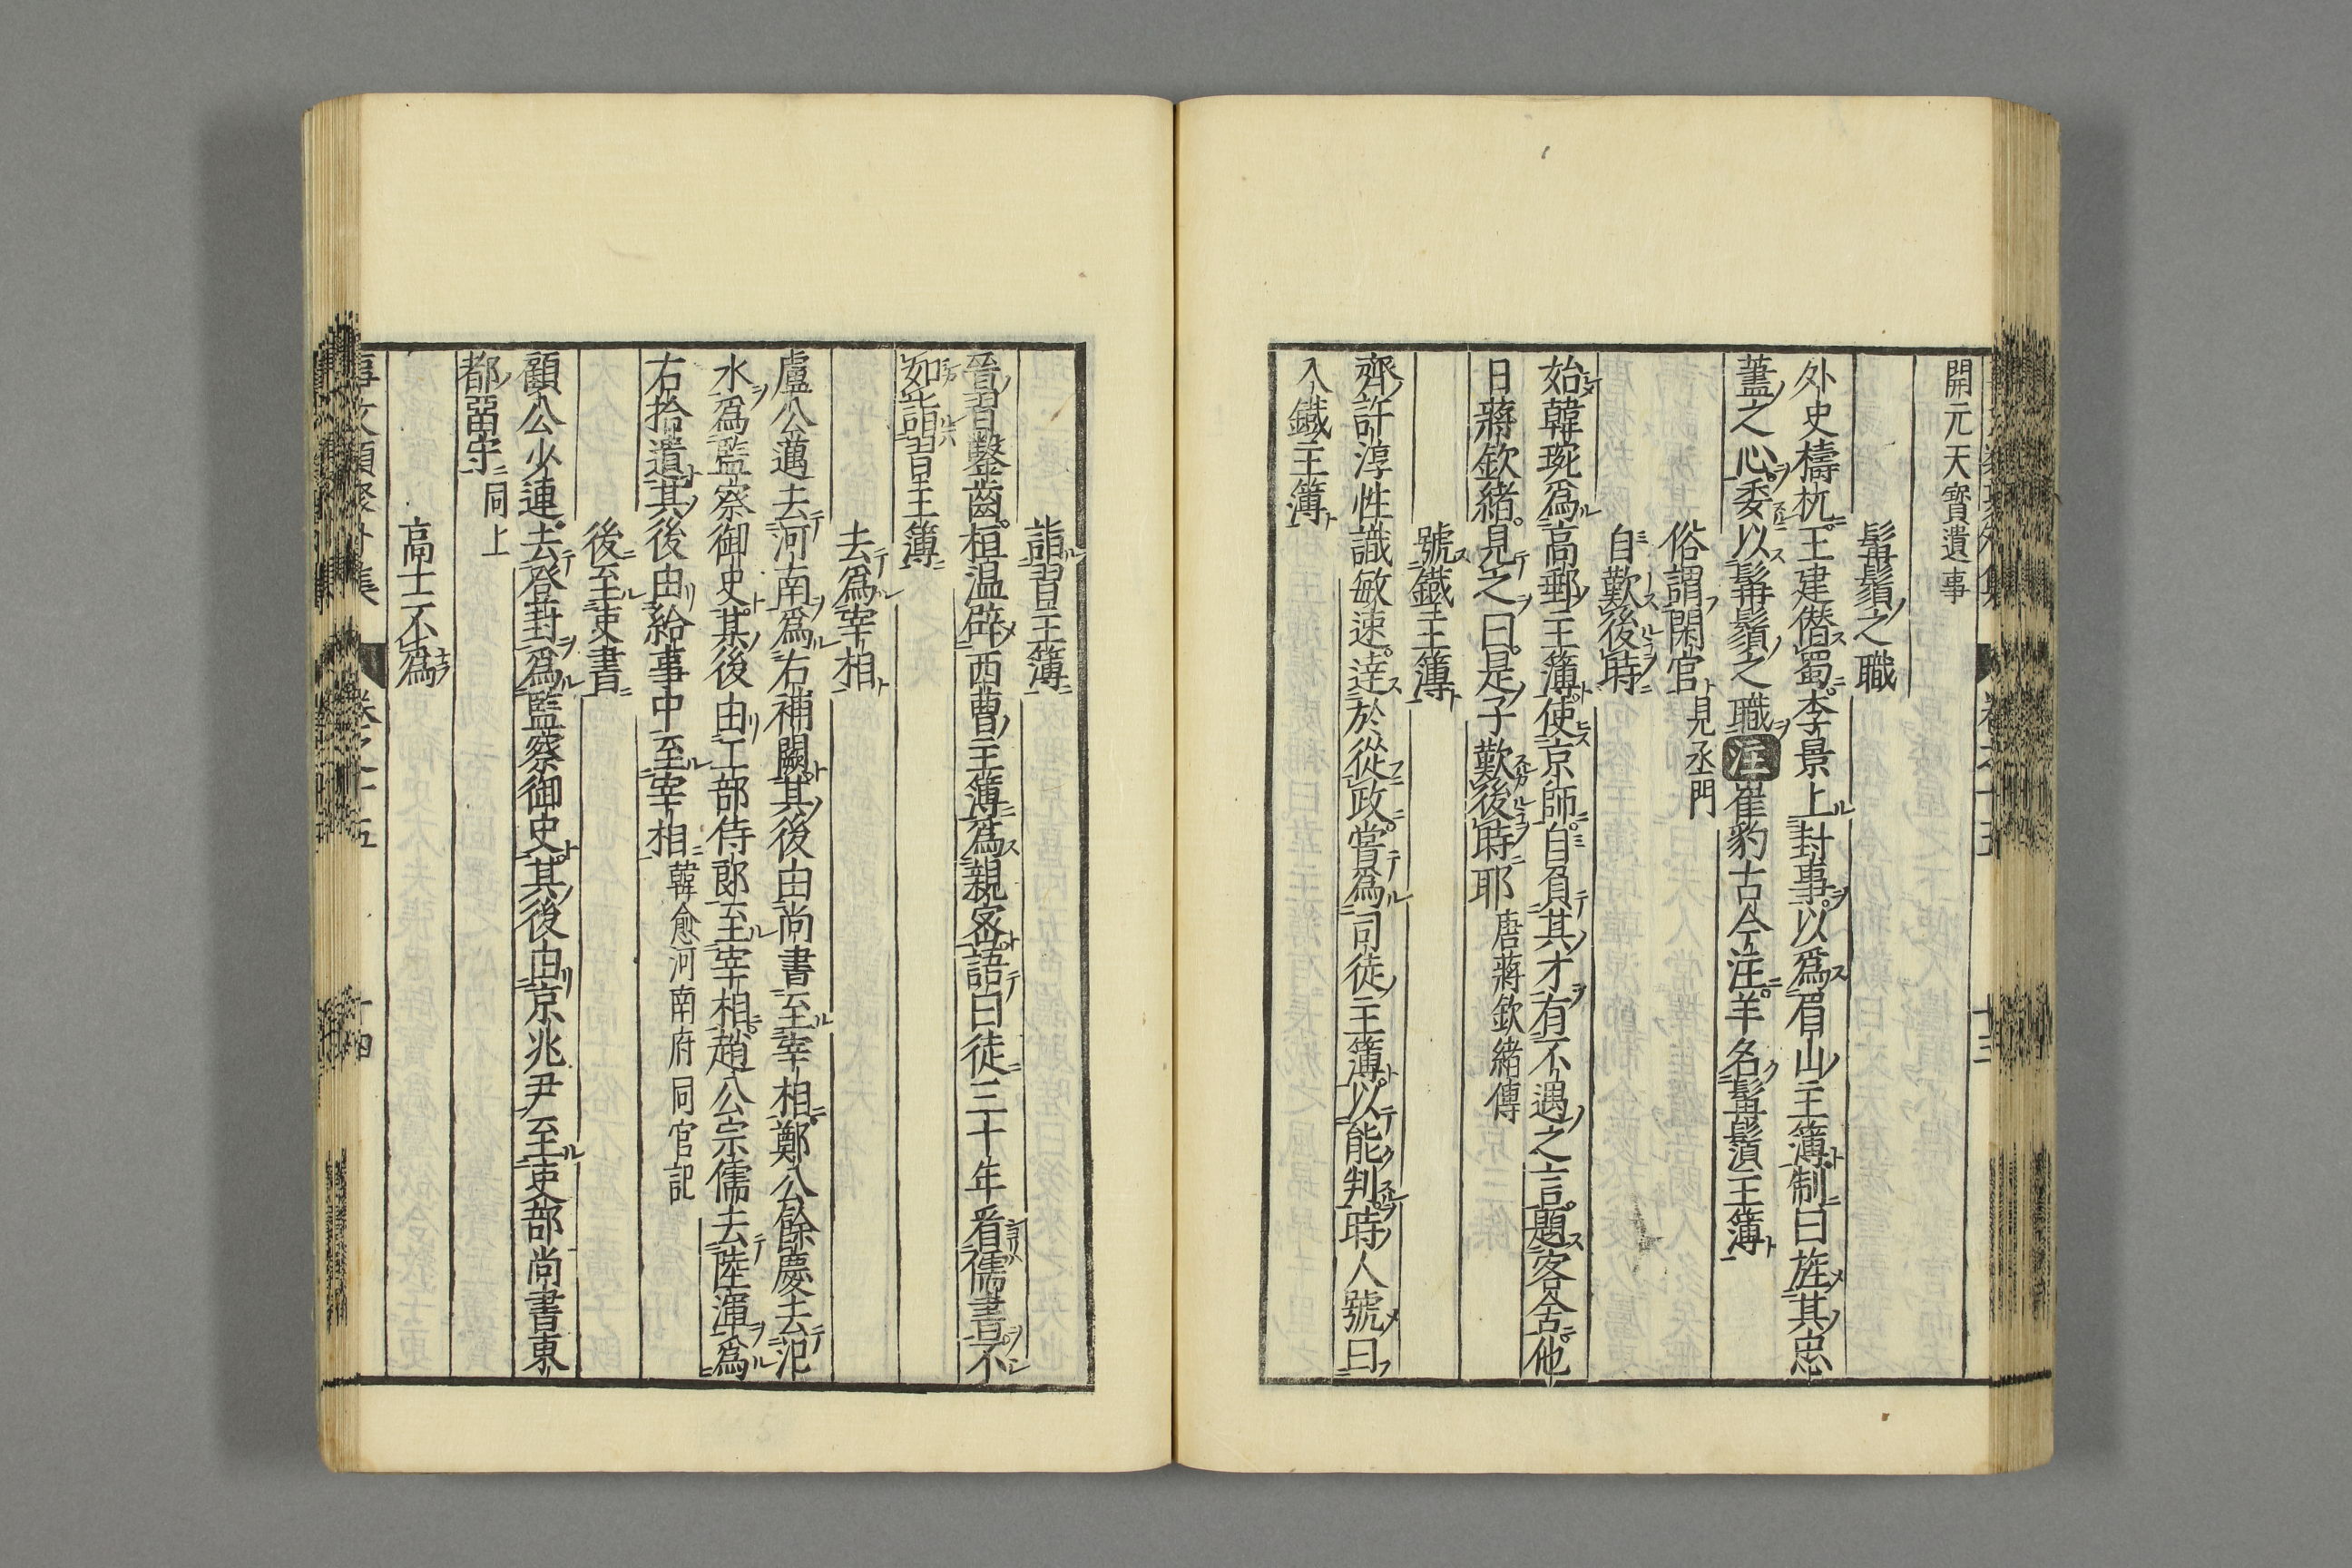 開元天寶遺事
髯鬚之職
外史檮杌王建僭蜀李景上封事以爲眉山主簿制曰旌其忠
藎之心委以髯鬚之職注崔豹古今注羊名髯鬚主簿
俗謂閑官見丞門
自歎後時
始韓琬爲高郵主簿使京師自負其才有不遇之言題客舍他
日蔣欽緒見之曰是子歎後時耶唐蔣欽緒傳
號鐵主簿
齊許淳性識敏速達於從政嘗爲司徒主簿以能判時人號曰
入鐵主簿
詣習主簿
晉習鑿齒桓温辟西曹主簿爲親密語曰徒三十年看儒書不
如詣習主簿
去爲宰相
盧公邁去河南爲右補闕其後由尚書至宰相鄭公餘慶去汜
水爲監察御史其後由工部侍郎至宰相趙公宗儒去陸渾爲
右拾遺其後由給事中至宰相韓愈河南府同官記
後至吏書
顧公少連去登封爲監察御史其後由京兆尹至吏部尚書東
都留守同上
高士不爲
事文類聚外集 卷之十五 十四